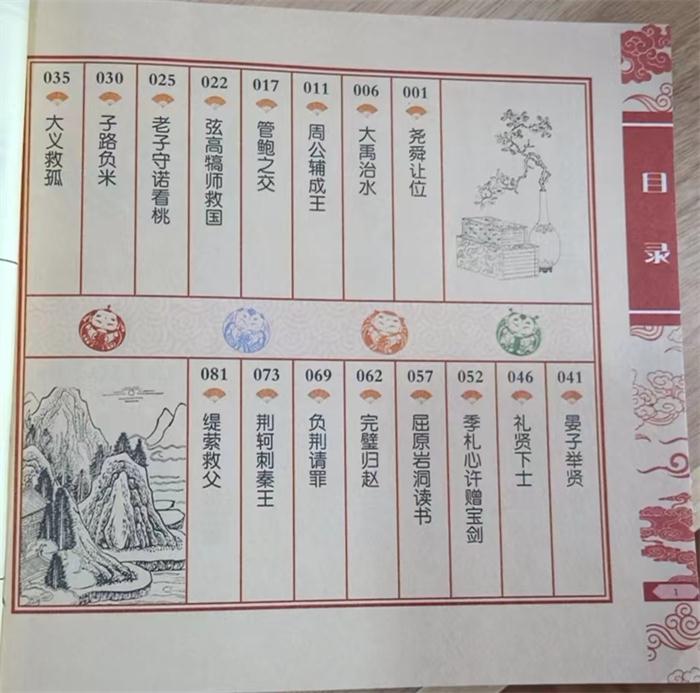 目录
001
尧舜让位
006
大禹治水
011
周公辅成王
017
管鲍之交
022
弦高犒师救国
025
老子守诺看桃
030
子路负米
035
大义救孤
041
晏子举贤
046
礼贤下士
052
季札心许赠宝剑
057
屈原岩洞读书
062
完璧归赵
069
负荆请罪
073
荆轲刺秦王
081
缇萦救父
1